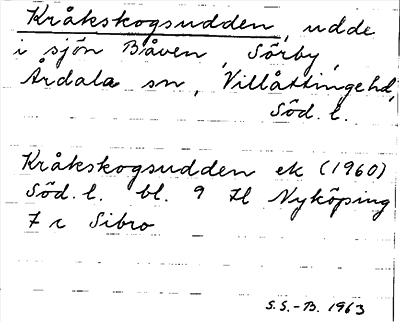 Kråkskogsudden, udde
i sjön Båven, Sörby,
Årdala sn, Villåttinge hd,
Söd. l.
Kråkskogsudden ek (1960)
Söd. l. bl. 9 H Nyköping
7 c Sibro
S.S.-B. 1963